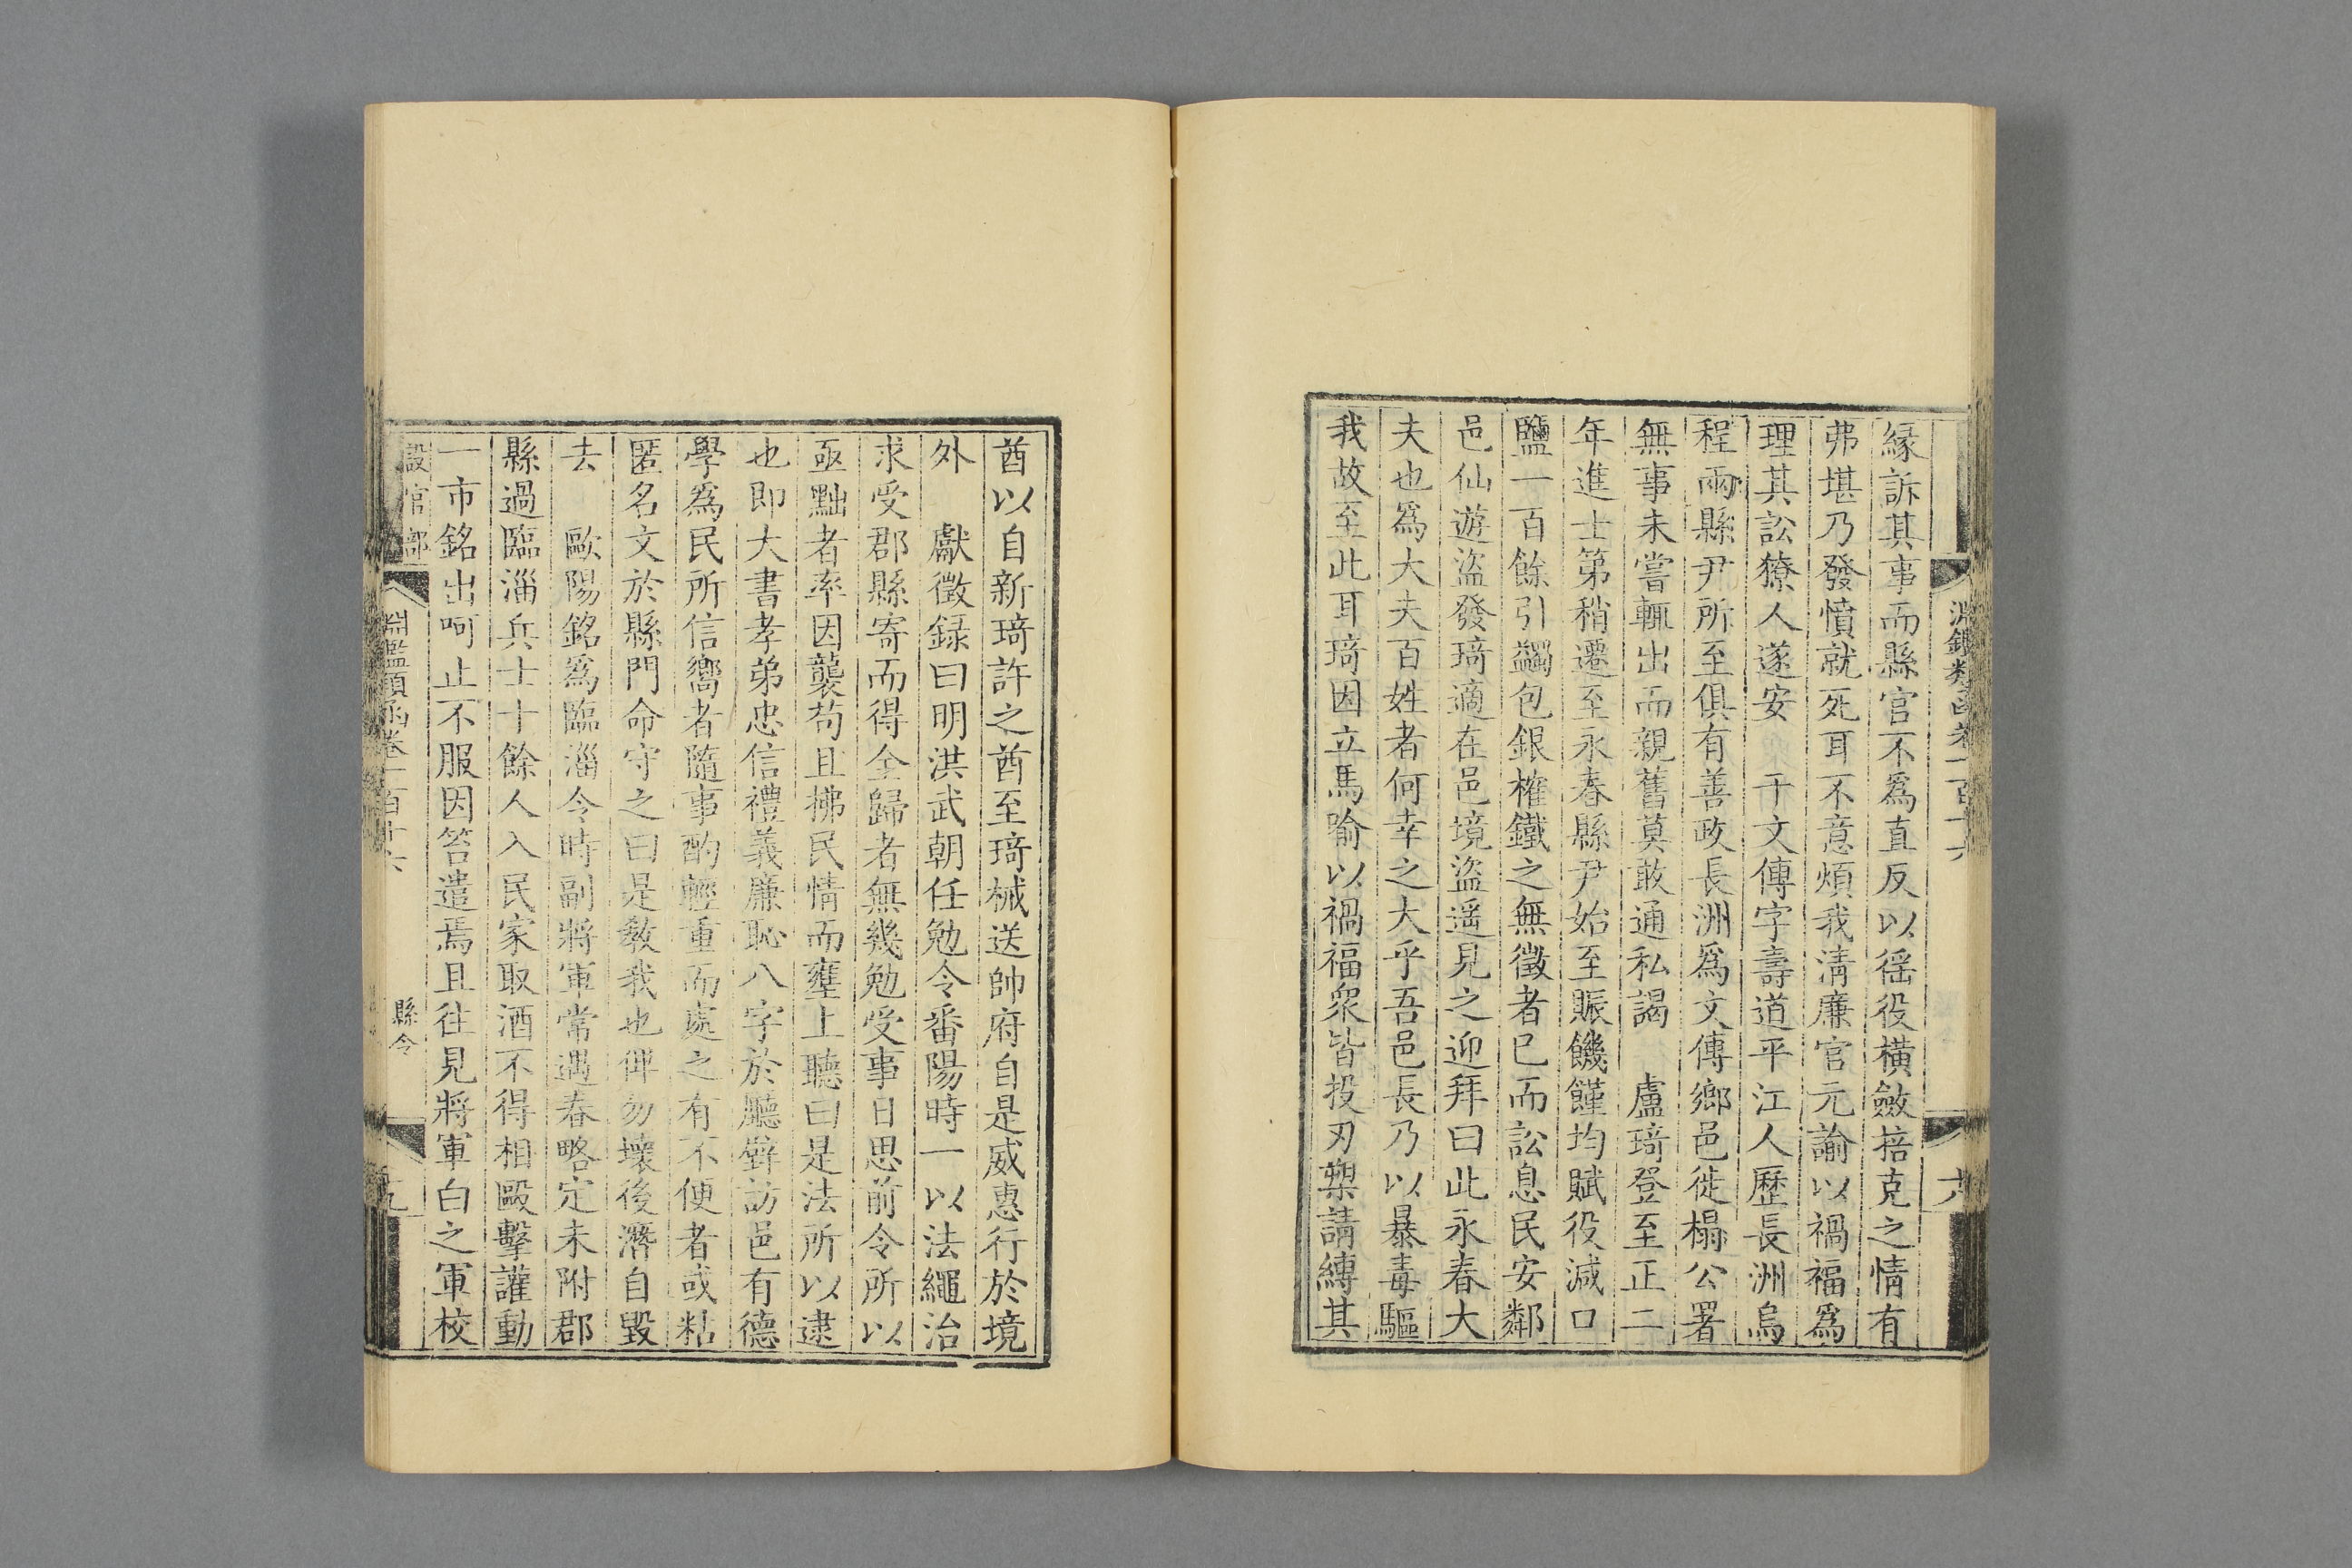 緣訴其事而縣官不爲直反以徭役橫斂掊克之情有
弗堪乃發憤就死耳不意煩我淸廉官元諭以禍福爲
理其訟獠人遂安　干文傳字壽道平江人歷長洲烏
程兩縣尹所至俱有善政長洲爲文傳鄉邑徙榻公署
無事未嘗輒出而親舊莫敢通私謁　盧琦登至正二
年進士第稍遷至永春縣尹始至賑饑饉均賦役減口
鹽一百餘引蠲包銀榷鐵之無徵者已而訟息民安鄰
邑仙遊盜發琦適在邑境盜遥見之迎拜曰此永春大
夫也爲大夫百姓者何幸之大乎吾邑長乃以暴毒驅
我故至此耳琦因立馬喻以禍福衆皆投刃槊請縛其
酋以自新琦許之酋至琦械送帥府自是威惠行於境
外　獻徵録曰明洪武朝任勉令番陽時一以法繩治
求受郡縣寄而得全歸者無幾勉受事日思前令所以
亟黜者率因襲苟且拂民情而壅上聽曰是法所以逮
也即大書孝弟忠信禮義廉恥八字於廳壁訪邑有德
學爲民所信嚮者隨事酌輕重而處之有不便者或粘
匿名文於縣門命守之曰是敎我也俾勿壞後潛自毀
去　歐陽銘爲臨淄令時副將軍常遇春略定未附郡
縣過臨淄兵士十餘人入民家取酒不得相毆擊讙動
一市銘出呵止不服因笞遣焉且往見將軍白之軍校
設官部
淵鑑類函卷一百十六
縣令